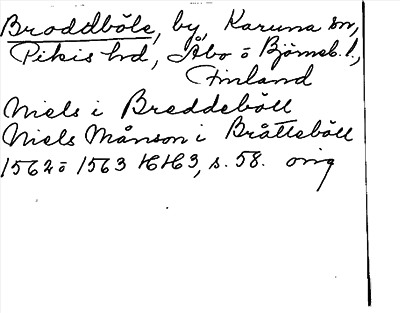 Broddböle, by, Karuna sn,
Pikis hd, Åbo o Björneb. l.,
Finland
Niels i Breddeböll
Niels Månson i Bråtteböll
1562 o 1563 HH3, s. 58. orig